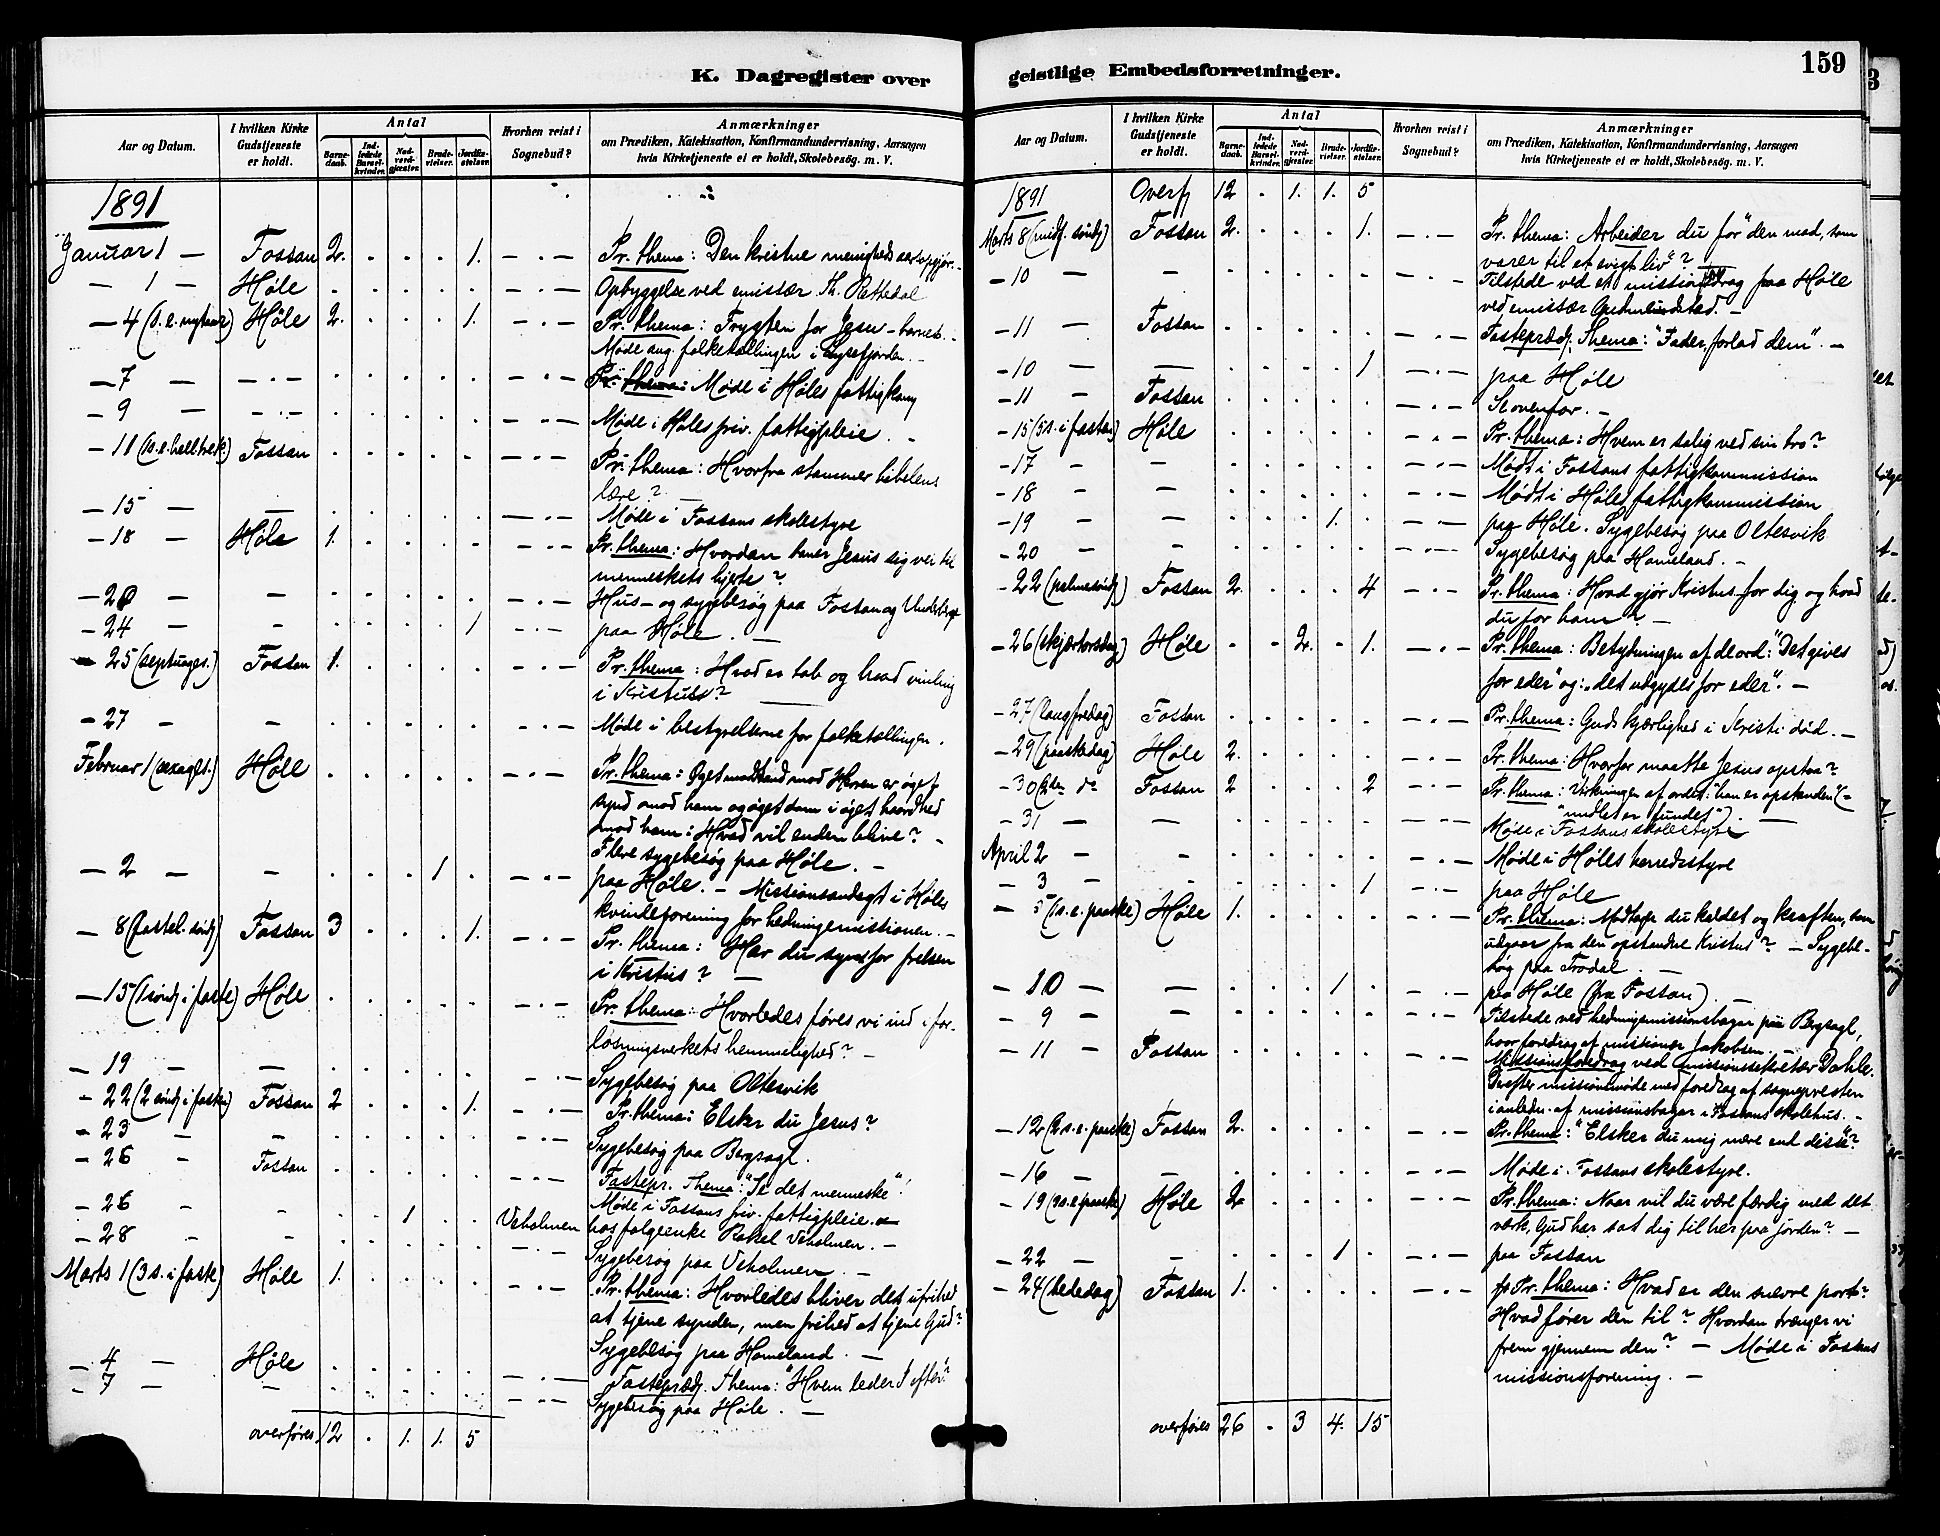 K. Dagregister over
Aar og Datum.
I hvilken Kirke Gudstjeneste er holdt.
Antal
Barnedaab.
Indledede Barselkvinder.
Nadverdgjæster.
Brudevielser.
Jordfæstelser.
Hvorhen reist i Sognebud?
Anmærkninger
om Prædiken, Katekisation, Konfirmandundervisning, Aarsagen
hvis Kirketjeneste ei er holdt, Skolebesøg. m. V.
1891
Januar 1 — Fossan 2. . . . 1. — . — Pr. thema: Den kristne menigheds
— 1 — Høle . . . . . — . — Opbyggelse ved emissær Th. Rettedal
— 4 (s. e. nytaar) Høle 2. . . . 1. — . — Pr. thema: Frygten for Jesu-barnet. —
Møde ang. folketællingen i Lysefjorden. —
— 7 — — . — . . . . . — . — Møde i Høles fattigkom
— 9 — — . — . . . . . — . — Møde i Høles friv. fattigpleie. —
— 11 (s. e. helltrek.) Fossan . . . . . — . — Pr. thema: Hvorfra stammer bibelens
lære? —
— 15 — — . . . . . — . — Møde i Fossans skolestyre
— 18 — Høle 1. . . . . — . — Pr. thema: Hvordan baner Jesus sig vei til
menneskets hjerte?
— 20 — — . . . . . — . — Hus- og sygebesøg paa Fossan og
— 24 — — . . . . 1 — . — paa Høle. —
— 25 (septuages.) Fossan 1. . . . . — . — Pr. thema: Hvad er tab og hvad vinding
i Kristus? —
— 27 — — . . . . . — . — Møde i bestyrelserne for folketællingen.
Februar 1 (sexages.) Høle . . . . . — . — Pr. thema: Øget modstand mod Herren er øget
synd mod ham og øget dom i øget haardhed
mod ham: Hvad vil enden blive? —
Flere sygebesøg paa Høle. —
— 2 — — . . . 1 . — . — paa Høle. — Missionsandagt i Høles
kvindeforening for hedningemissionen. —
— 8 (fastel. søndg) Fossan 3 . . . 1. — . — Pr. thema: Har du syns for frelsen
i Kristus? —
— 15 (1 søndg i faste) Høle . . . . . — . — Pr. thema: Hvorledes føres vi ind i for-
løsningsverkets hemmelighed? —
— 19 — — . . . . . — . — Sygebesøg paa Oltesvik
— 22 (2 søndg i faste) Fossan 2 . . . 1. — . — Pr. thema: Elsker du Jesus?
— 23 — — . . . . . Sygebesøg paa Bergsagl.
— 26 — Fossan . . . . . Fastepr. Thema: "Se det menneske".
— 26 — — . . 1 . . Veholmen Møde i Fossans friv. fattigpleie. —
hos folgeenke Rakel Veholmen. —
— 28 — — . . . . . — . — Sygebesøg paa Veholmen. —
Marts 1 (3 s. i faste) Høle 1. . . . . — . — Pr. thema: Hvorledes bliver det ufrihed
at tjene synden, men frihed at tjene Gud?
Sygebesøg paa Homeland. —
— 4 — Høle . . . . . — . — Fasteprædg. Thema: "Hvem leder I efter?"
— 7 — — . . . . . — . — Sygebesøg paa Høle. —
overføres 12 . 1. 1. 5
geistlige Embedsforretninger.
159
Aar og Datum.
I hvilken Kirke Gudstjeneste er holdt.
Antal
Barnedaab.
Indledede Barselkvinder.
Nadverdgjæster.
Brudevielser.
Jordfæstelser.
Hvorhen reist i Sognebud?
Anmærkninger
om Prædiken, Katekisation, Konfirmandundervisning, Aarsagen
hvis Kirketjeneste ei er holdt, Skolebesøg. m. V.
1891 Overf 12 . 1. 1. 5
Marts 8 (midf. søndg) Fossan 2. . . . 1. — . — Pr. thema: Arbeider du for "den mad, som
varer til et evigt liv"?
— 10 — — . . . . . Tilstede ved et missionsfdrag paa Høle
ved emissær
— 11 — Fossan . . . . . — . — Fasteprædg. Thema: "Fader, forlad dem". —
— 10 — — . . . . 1 — . — paa Høle
— 11 — Fossan . . . . . — . — Se ovenfor. —
— 15 (5 s. i fasten) Høle . . . . . — . — Pr. thema: Hvem er salig ved sin tro?
— 17 — — . . . . . — . — Mødt i Fossans fattigkommission
— 18 — — . . . . . — . — Mødt i Høles fattigkommission
— 19 — — . . . 1. . — . — paa Høle. Sygebesøg paa Oltesvik
— 20 — — . . . . . — . — Sygebesøg paa Homeland. —
— 22 (palmesøndg) Fossan 2. . . . 4 — . — Pr. thema: Hvad gjør Kristus for dig og hvad
du for ham? —
— 26 (skjærtorsdag) Høle . . 2. . 1. — . — Pr. thema: Betydningen af de ord: "Det gives
for eder" og: "det udgydes for eder". —
— 27 (langfredag) Fossan . . . . . — . — Pr. thema: Guds kjærlighed i Kristi død. —
— 29 (paaskedag) Høle 2. . . . . — . — Pr. thema: Hvorfor maatte Jesus opstaa?
— 30 (2den do Fossan 2 . . . 2 — . — Pr. thema: Virkningen af ordet: "han er opstanden" (—
"undlet er fundet"). —
— 31 — — . . . . . — . — Møde i Fossans skolestyre
April 2 — — . . . . . — . — Møde i Høles herredsstyre
— 3 — — . . . . 1 — . — paa Høle
— 5 (1 s. e. paaske) Høle 1. . . . . — . — Pr. thema: Modtager du kaldet og kraften, som
udgaar fra den opstandne Kristus? — Sygebe-
søg paa Frodal. —
— 10 — — . . . 1 . — . — paa Høle (fra Fossan). —
— 9 — — . . . . . — . — Tilstede ved hedningemissionsbazar paa Bergsagl,
hvor foredrag af missionær Jakobsen.
— 11 — Fossan . . . . . — . — Missionsforedrag ved missionssekretær Dahle.
Derefter missionsmøde med foredrag af sognepresten
i anledn. af missionsbazar i Fossans skolehus. —
— 12 (2 s. e. paaske) Fossan 2. . . . . — . — Pr. thema: "Elsker du mig mere end disse"?
— 16 — — . . . . . — . — Møde i Fossans skolestyre.
— 19 (3 s. e. paaske) Høle 2 . . . . — . — Pr. thema: Naar vil du være færdig med det
verk, Gud har sat dig til her paa jorden? —
— 22 — — . . . 1 . — . — paa Fossan
— 24 (bededag) Fossan 1. . . . . — . — Pr. thema: Hvad er den snevre port?
Hvad fører den til? Hvordan trænger vi
frem gjennem den? — Møde i Fossans
missionsforening. —
overføres 26 . 3 4. 15